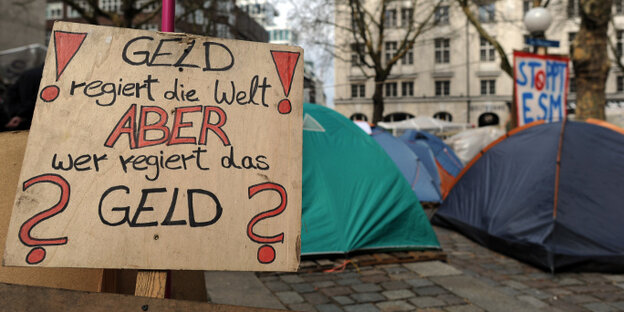 ! GELD !
regiert die Welt
ABER
wer regiert das
? GELD ?
STOPPT
ESM